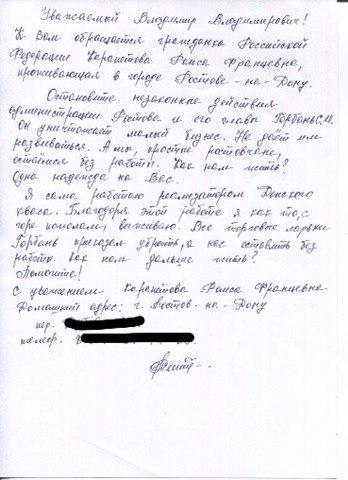 Уважаемый Владимир Владимирович!
К Вам обращается гражданка Российской
Федерации Карапетова Раиса Францевна,
проживающая в городе Ростове-на-Дону.
Остановите незаконные действия
администрации Ростова и его главы Горбань С.И.
Он уничтожает малый бизнес. Не даёт им
развиваться. А мы, простые ростовчане,
остаёмся без работы. Как нам жить?
Одна надежда на Вас.
Я сама работаю реализатором Донского
кваса. Благодаря этой работе я как то, с
горе пополам, выживаю. Все торговые ларьки
Горбань приказал убрать, а нас оставить без
работы. Как нам дальше жить?
Помогите!
С уважением Карапетова Раиса Францевна
Домашний адрес: г. Ростов-на-Дону
пер.
телеф.